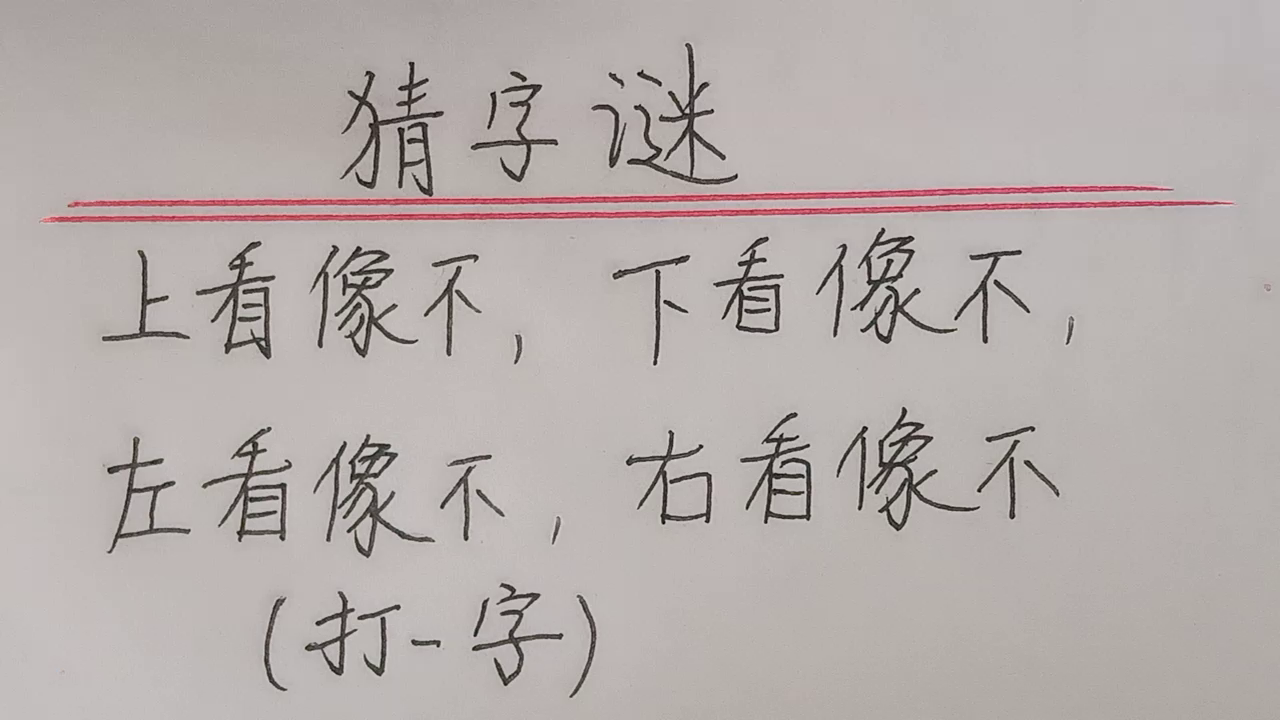 猜字谜
上看像不，下看像不，
左看像不，右看像不
(打一字)